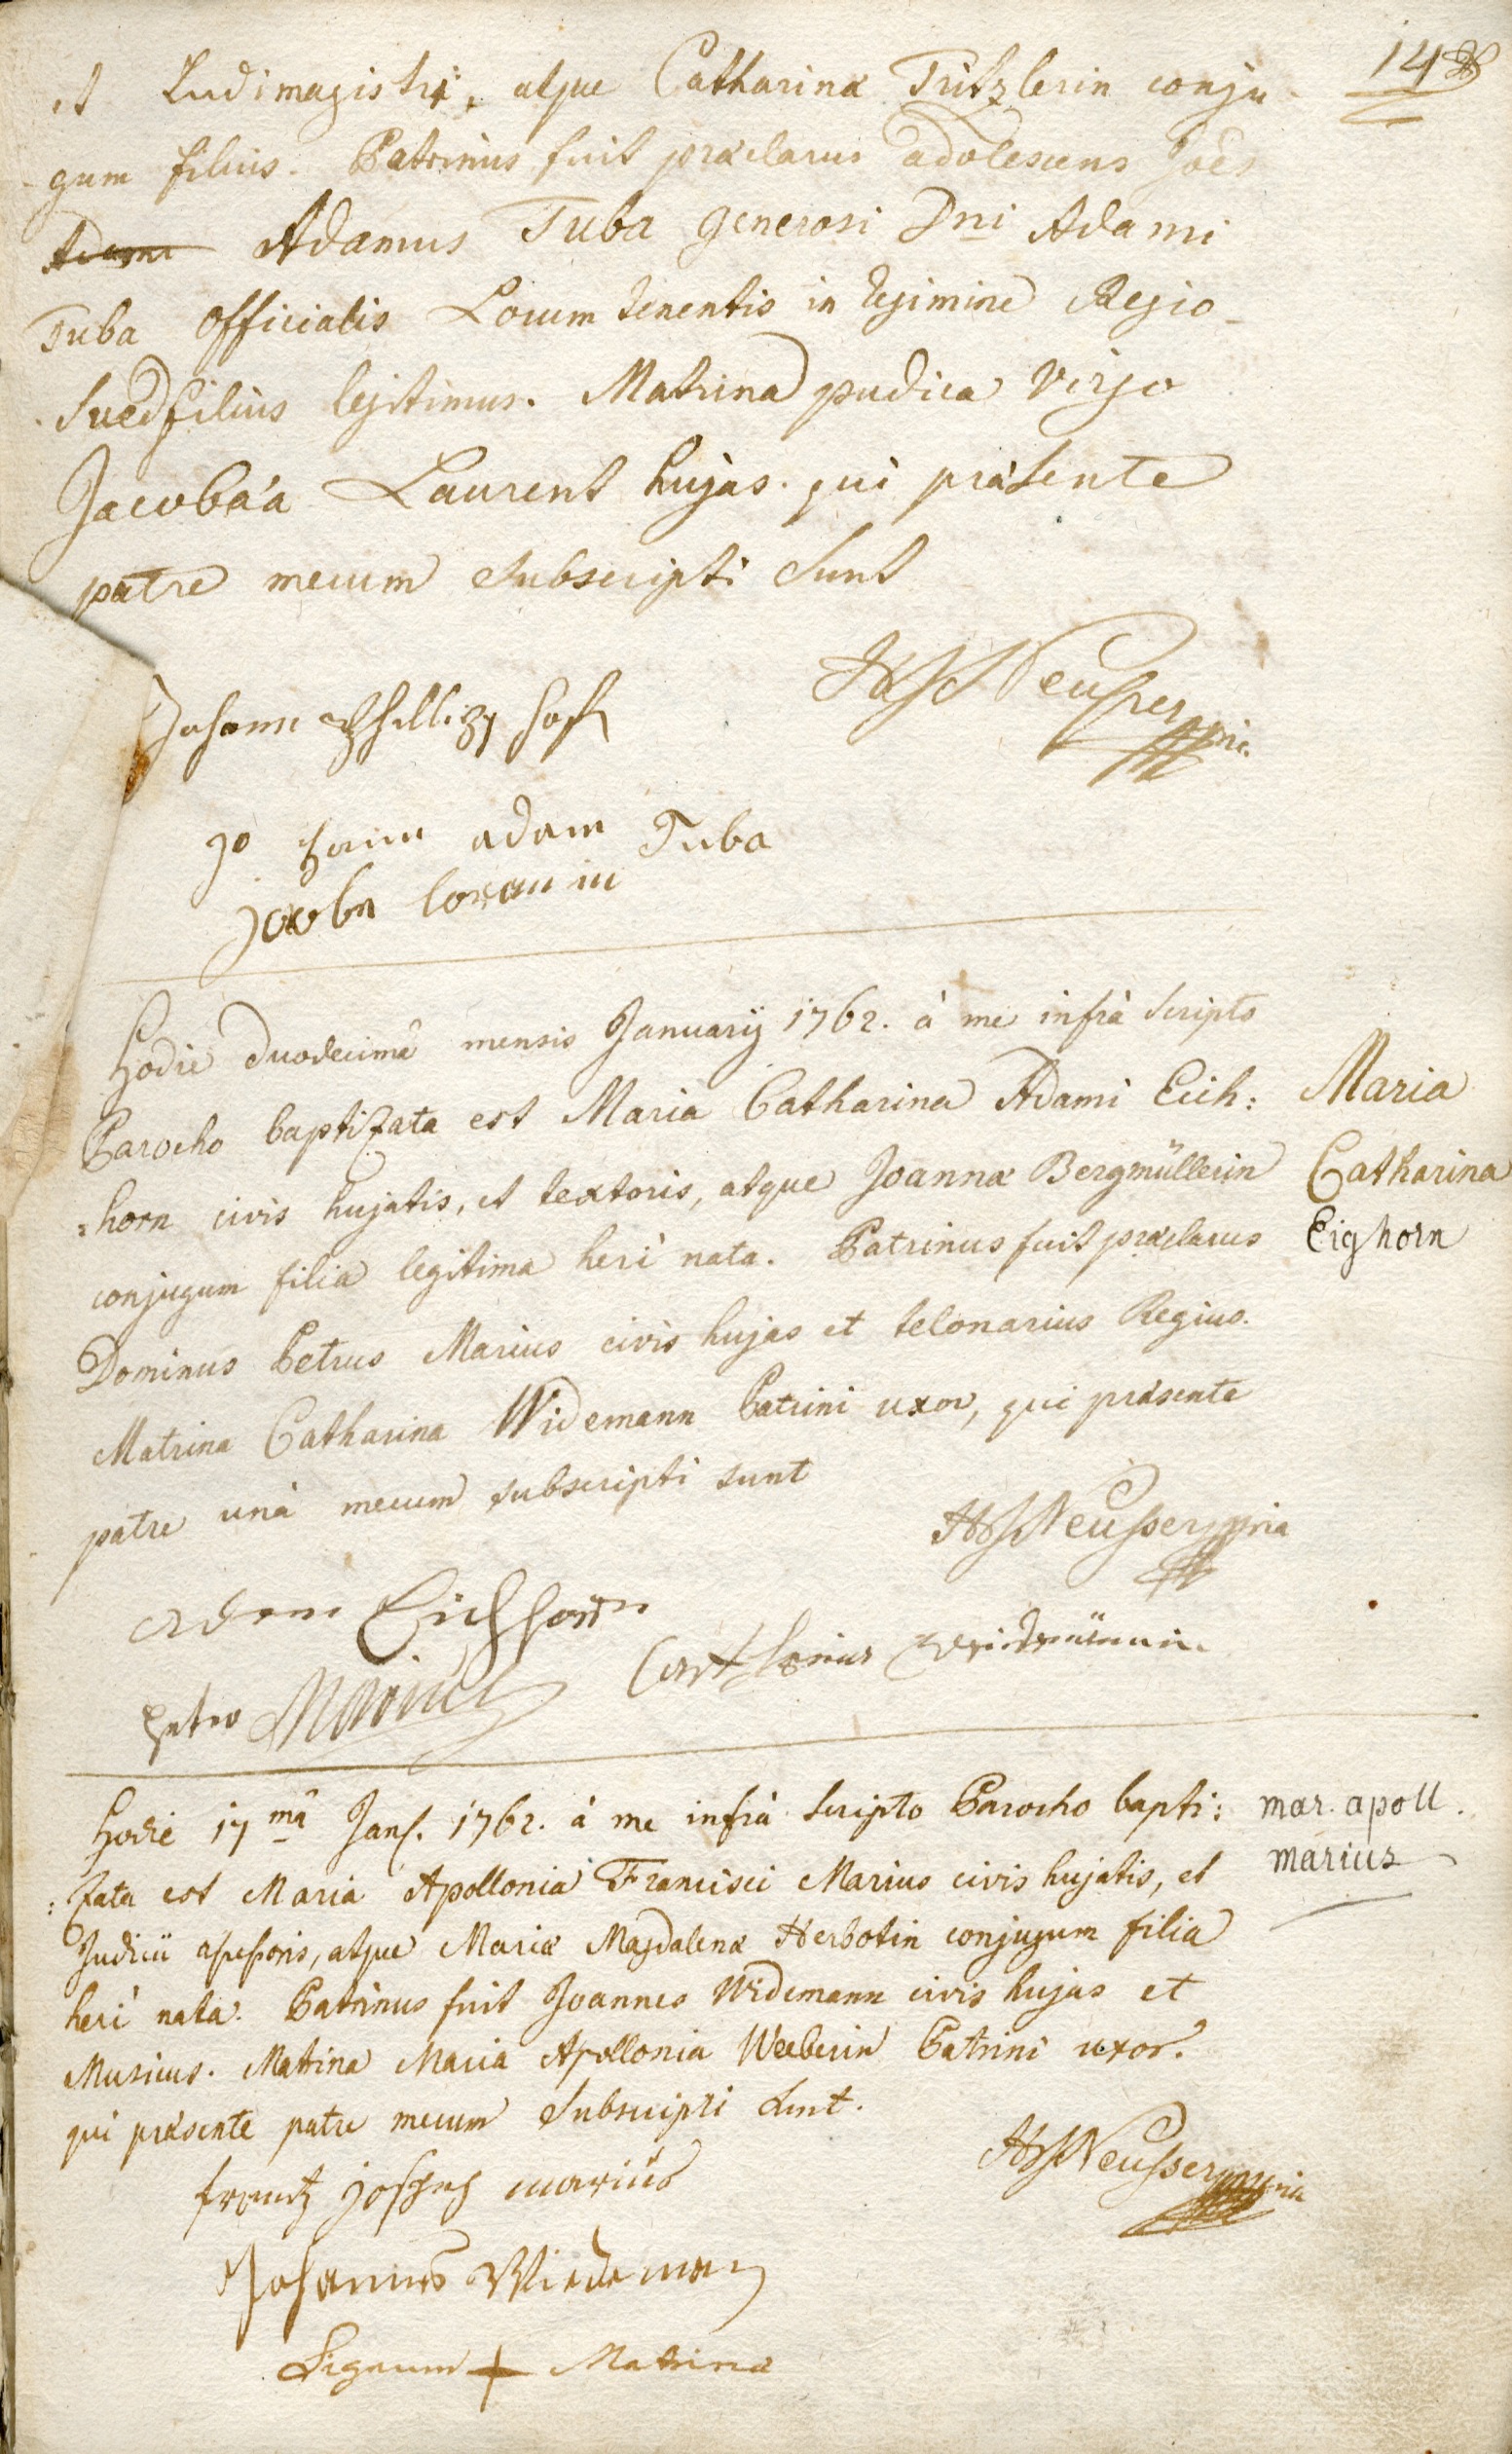 148
et Ludimagistri, atque Catharinæ Tritzlerin conju
gum filius. Patrinus fuit præclarus adolescens Joes
Adamus Tuba generosi Dni Adami
Tuba officialis Locum tenentis in regimine Regio
Sued filius legitimus. Matrina pudica virgo
Jacobæa Laurent hujas. qui præsente
patre mecum subscripti sunt
HJNeusser mpria.
Johann Phillipp
Johann adam Tuba
Jacoba
Hodie duodecimâ mensis Januarij 1762. à me infrà scripto
Parocho baptizata est Maria Catharina Adami Eich:
:horn civis hujatis, et textoris, atque Joannæ Bergmüllerin
conjugum filia legitima heri nata. Patrinus fuit præclarus
Dominus Petrus Marius civis hujas et telonarius Regius.
Matrina Catharina Widemann Patrini uxor, qui præsente
patre unà mecum subscripti sunt
Maria
Catharina
Eighorn
HJNeusser mpria
Adam Eichhorn
Petter Marius
Catharina Weidmännin
Hodie 17mâ Janß. 1762. à me infrà scripto Parocho bapti:
:zata est Maria Apollonia Francisci Marius civis hujatis, et
Judicii assessoris, atque Mariæ Magdalenæ Herbotin conjugum filia
heri nata. Patrinus fuit Joannes Widemann civis hujas et
Musicus. Matrina Maria Apollonia Weeberin Patrini uxor.
qui præsente patre mecum subscripti sunt.
mar. apoll.
marius
HJNeusser mpria
frantz joseph marius
Johannes Wiedeman
Signum + Matrinæ